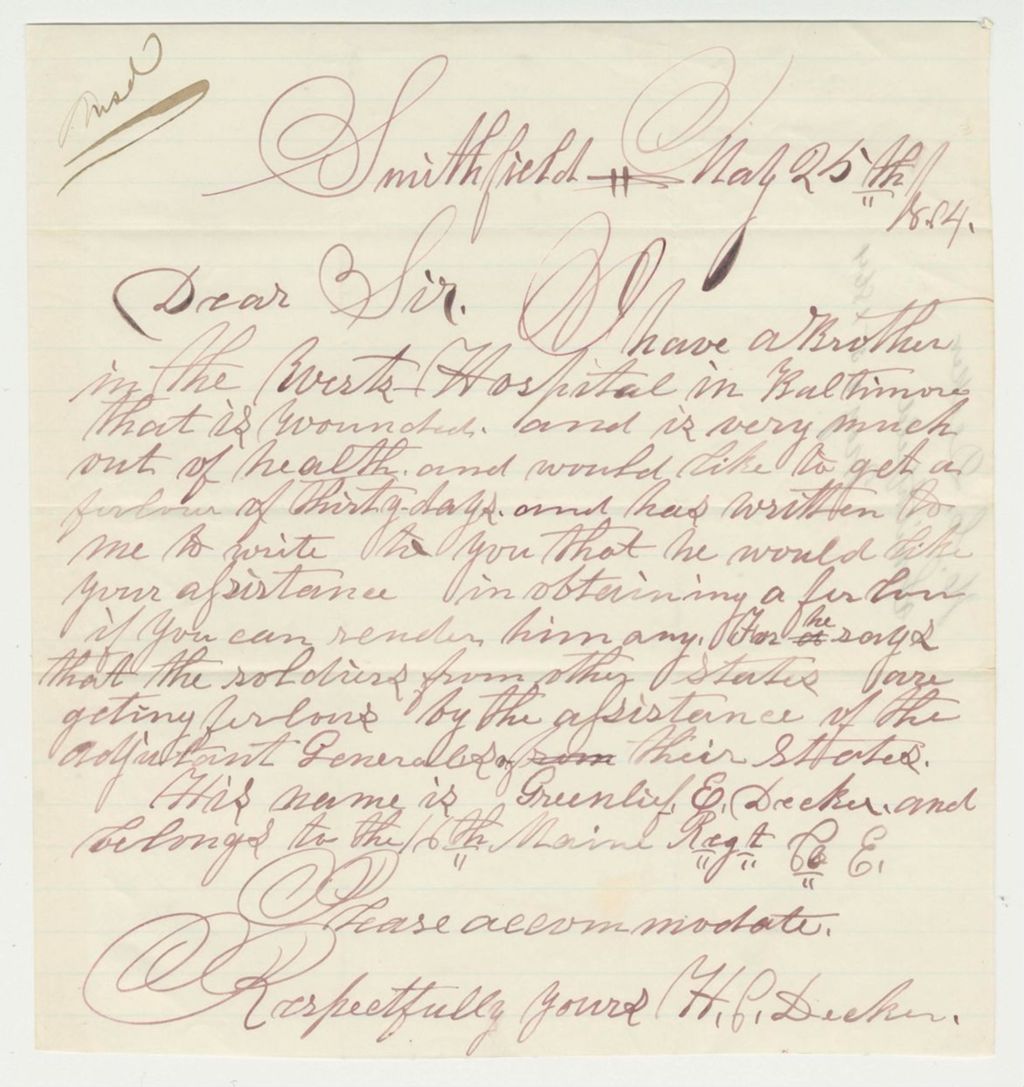 Smithfield May 25th
18.64.
Dear Sir. I have a Brother
in the West Hospital in Baltimore
that is wounded. and is very much
out of health. and would like to get a
furlow of thirty-days. and has written to
me to write to you that he would like
your assistance in obtaining a furlow
if you can render him any. For he says
that the soldiers from other States are
geting furlows by the assistance of the
adjutant Generals of from their States.
His name is Greenlief. E. Decker. and
belongs to the 16th Maine Regt Co E.
Please accommodate.
Respectfully yours H. C. Decker.